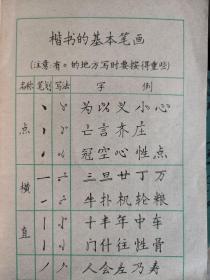 楷书的基本笔画
(注意:有。的地方写时要按得重些)
名称 笔划 写法 字 例
点
为以义小心
亡言齐庄
冠空心性点
横
三旦廿丁万
牛扑机轮粮
直
十丰年中车
门什往性骨
人会左乃寿